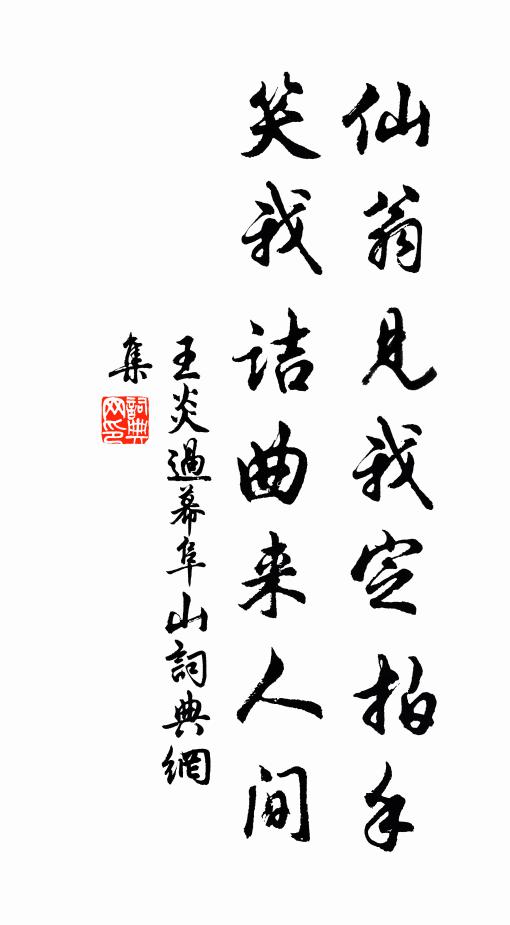 仙翁见我定拍手
笑我诘曲来人间
王炎過幕阜山詞典網
集
詞典网印